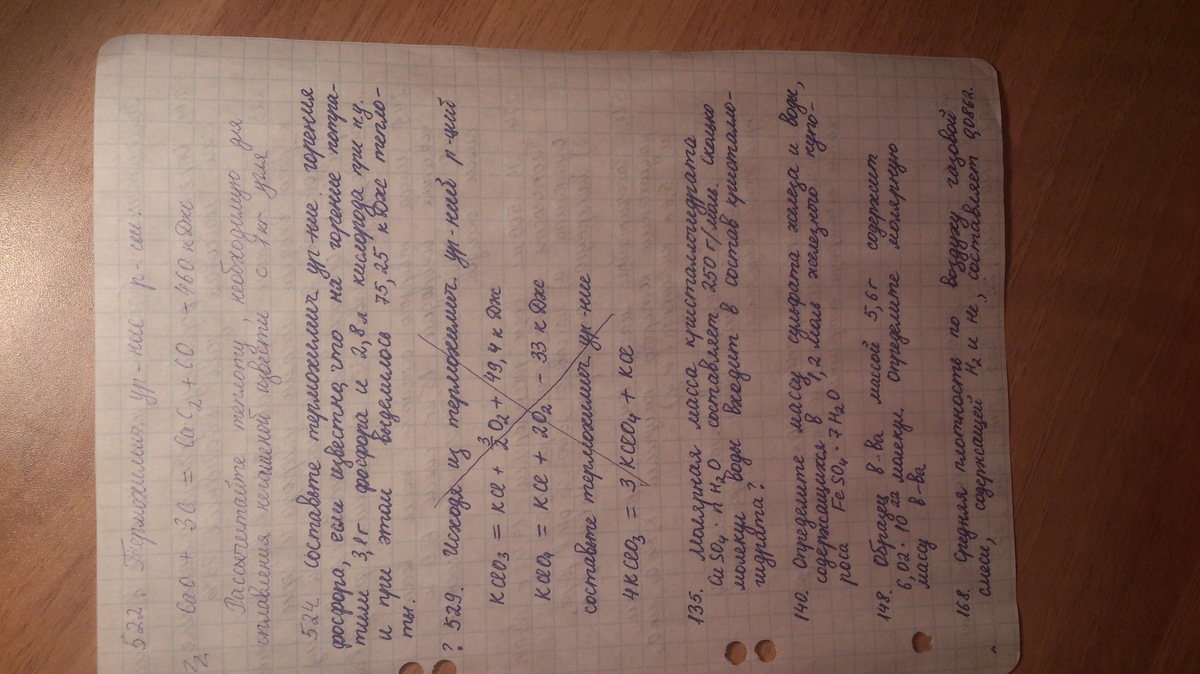 522. Термохимич. ур-ние р-ции:
CaO + 3C = CaC2 + CO - 460 кДж
Рассчитайте теплоту, необходимую для
сплавления негашеной извести с 1 кг угля
524. Составьте термохимич ур-ние горения
фосфора, если известно, что на горение потра-
тили 3,1 г фосфора и 2,8 л кислорода при н.у.
и при этом выделилось 75,25 кДж тепло-
ты.
? 529. Исходя из термохимич. ур-ний р-ций
KClO3 = KCl + 3/2 O2 + 49,4 кДж
KClO4 = KCl + 2O2 - 33 кДж
составьте термохимич ур-ние
4KClO3 = 3KClO4 + KCl
135. Молярная масса кристаллогидрата
CuSO4 · n H2O составляет 250 г/моль. Сколько
молекул воды входит в состав кристалло-
гидрата?
140. Определите массу сульфата железа и воды,
содержащихся в 1,2 моль железного купо-
роса FeSO4 · 7H2O
148. Образец в-ва массой 5,6 г содержит
6,02 · 10 22 молекул. Определите молярную
массу в-ва
168. Средняя плотность по воздуху газовой
смеси, содержащей H2 и He, составляет 0,0862.